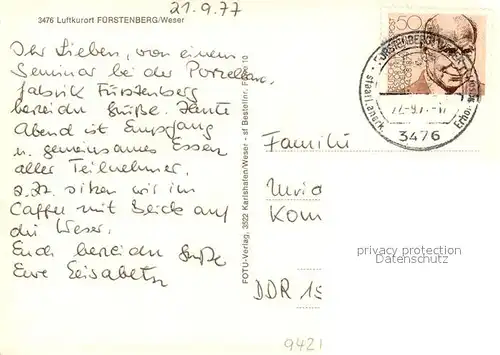 21.9.77
3476 Luftkurort FÜRSTENBERG/Weser
Ihr Lieben, von einem
Seminar bei der Porzellan-
fabrik Fürstenberg
herzliche Grüße. Heute
Abend ist Empfang
u. gemeinsames Essen
aller Teilnehmer.
z. Zt. sitzen wir im
Caffee mit Blick auf
die Weser.
Euch herzliche Grüße
Eure Elisabeth
FOTU-Verlag, 3522 Karlshafen/Weser - sf Bestellnr.
50
FÜRSTENBERG
staatl. anerk.
3476
Familie
DDR
privacy protection
Datenschutz
9421